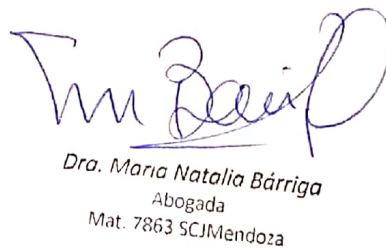 Dra. María Natalia Bárriga
Abogada
Mat. 7863 SCJMendoza